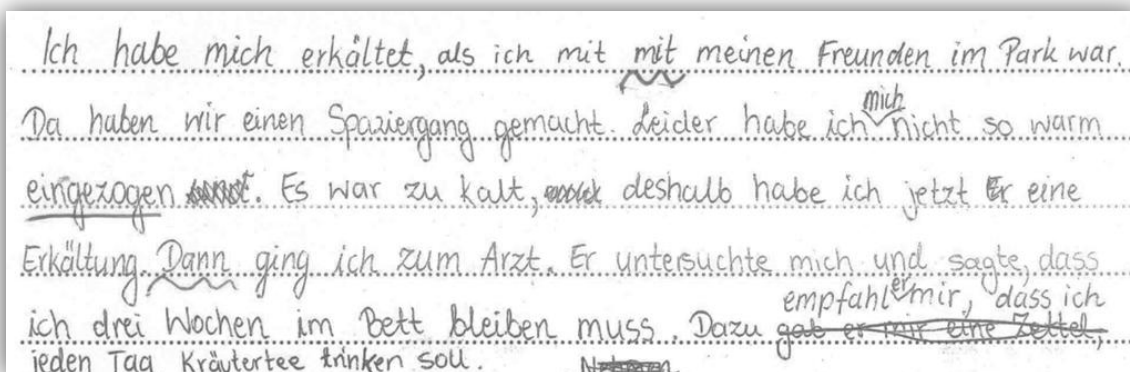 Ich habe mich erkältet, als ich mit mit meinen Freunden im Park war.
Da haben wir einen Spaziergang gemacht. Leider habe ich mich nicht so warm
eingezogen. Es war zu kalt, deshalb habe ich jetzt Er eine
Erkältung. Dann ging ich zum Arzt. Er untersuchte mich und sagte, dass
empfahl er mir, dass ich
ich drei Wochen im Bett bleiben muss. Dazu gab er mir eine Zettel,
jeden Tag Kräutertee trinken soll.